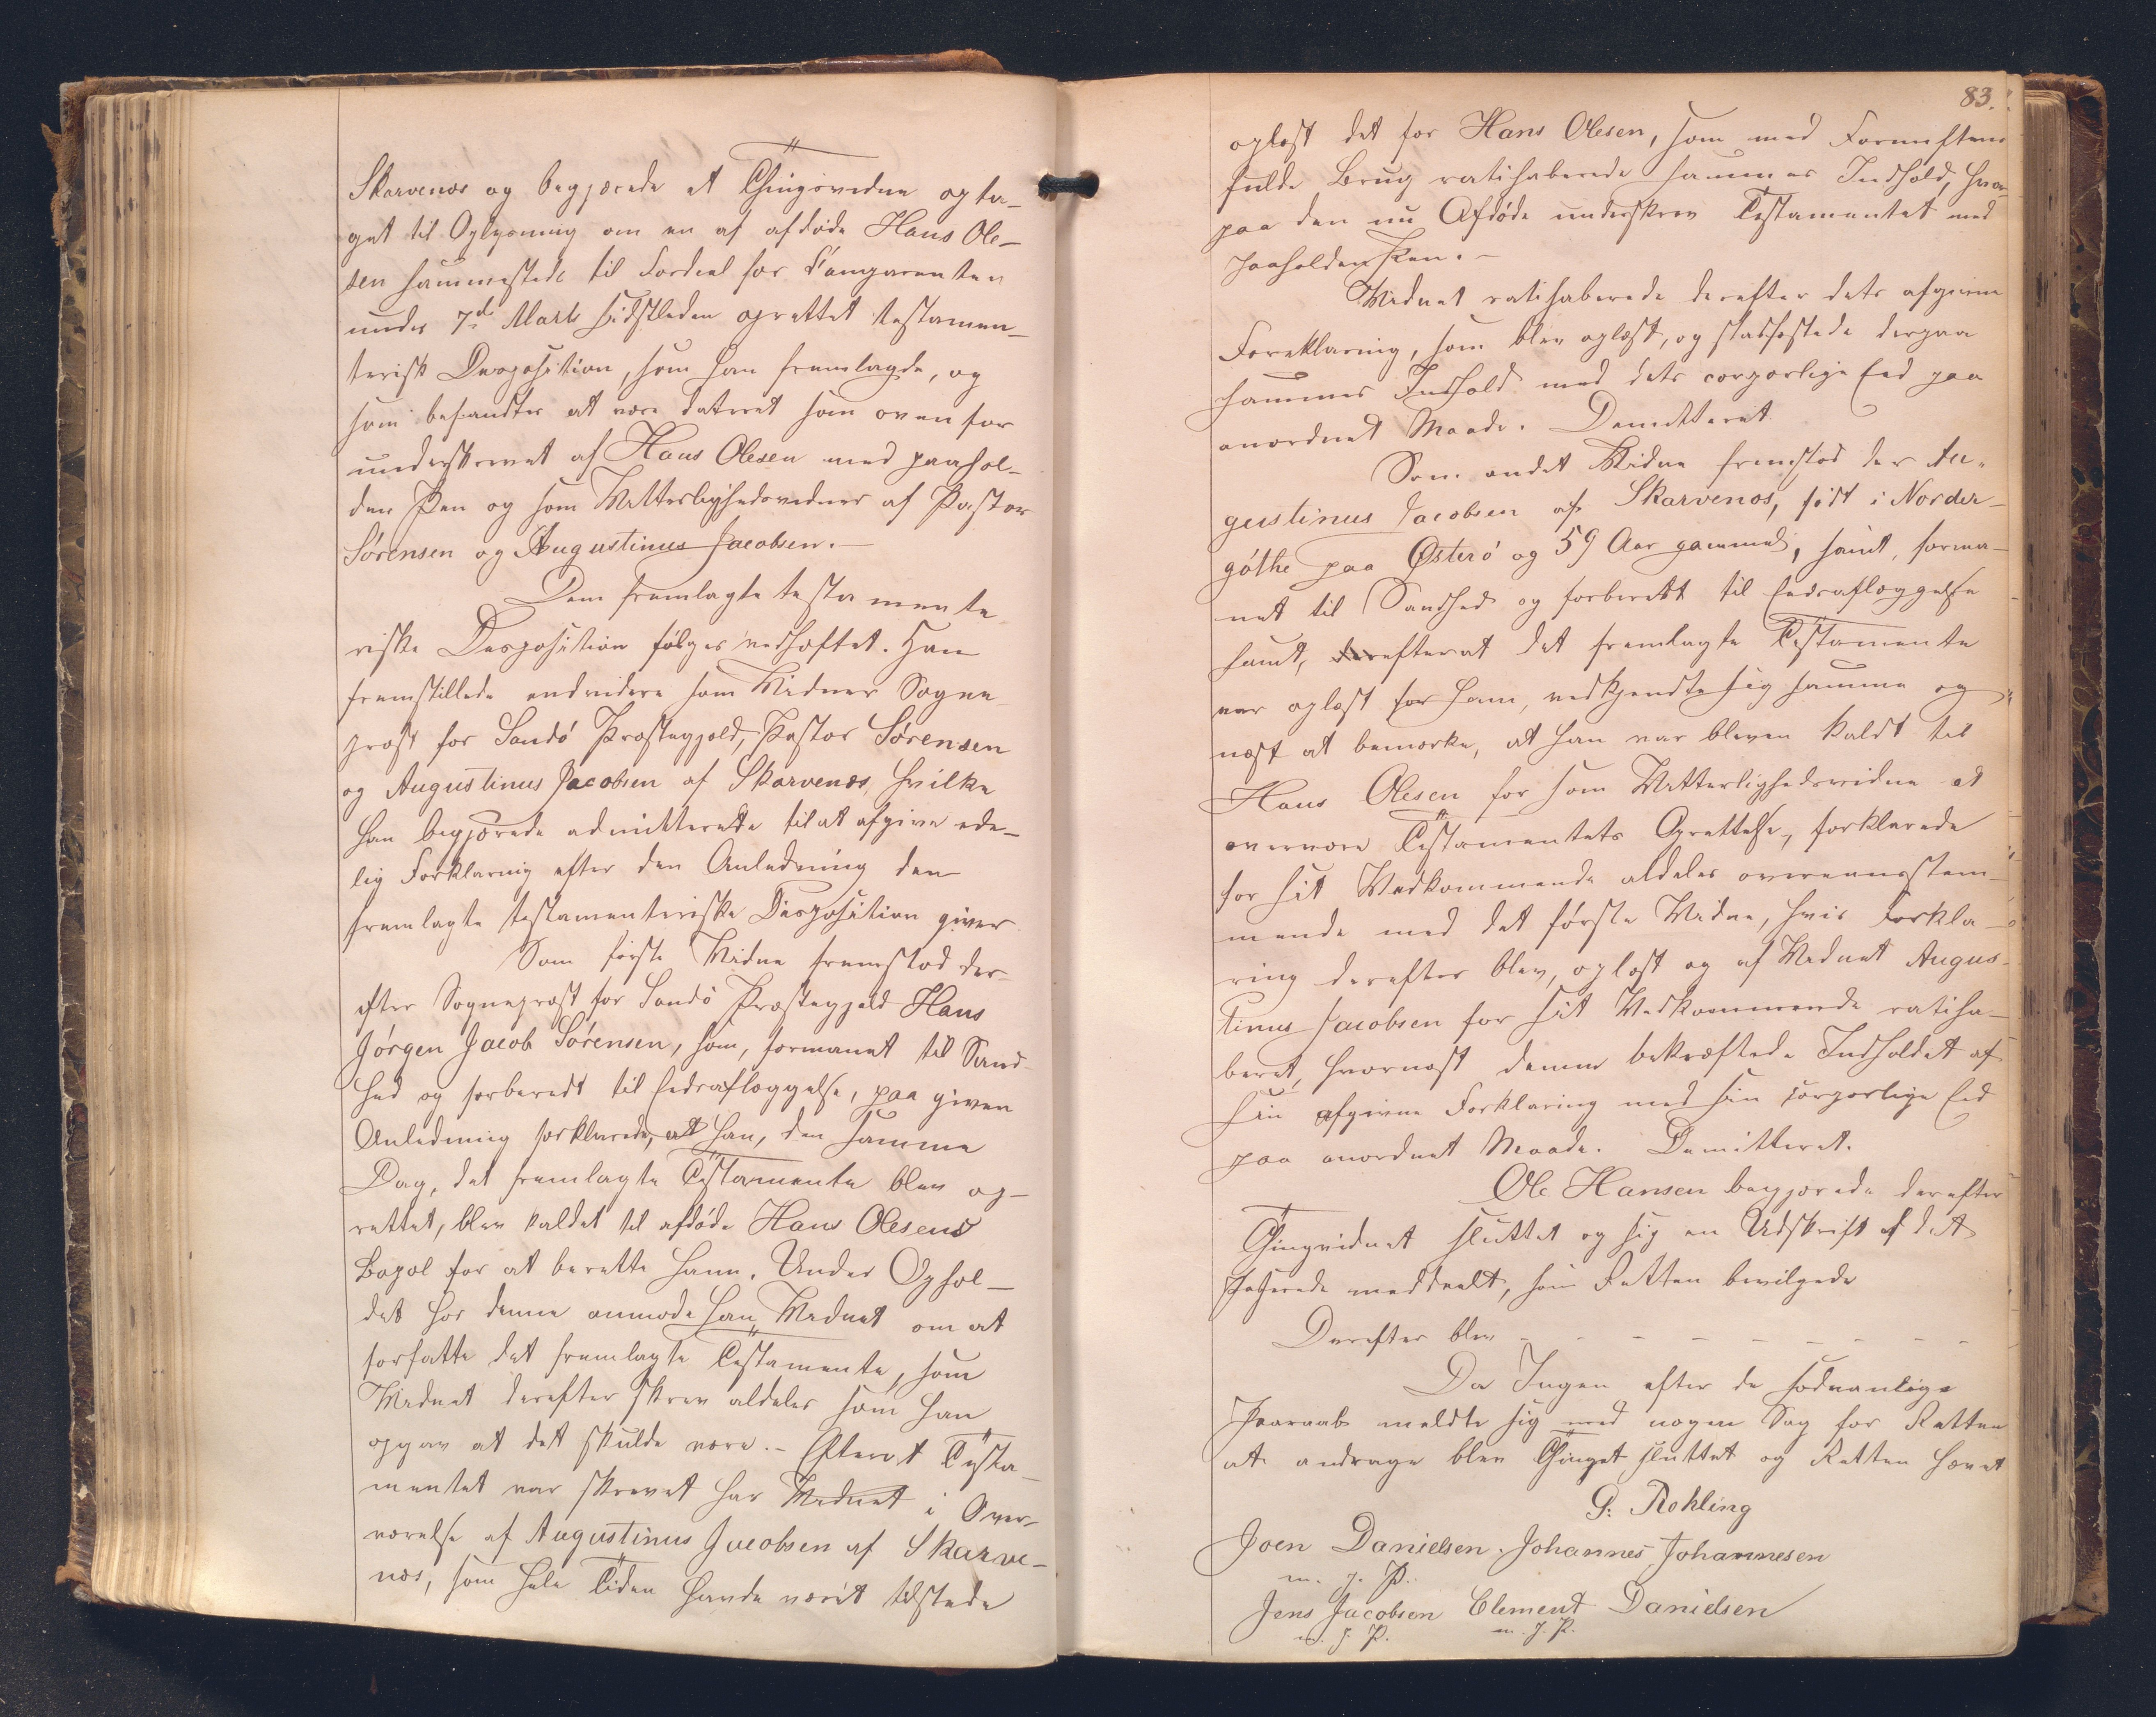 Skarvenæs og begjærede et Thingsvidne opta-
get til Oplysning om en af afdøde Hans Ole-
sen sammesteds til Fordeel for Comparenten
under 7de Marts sidstleden oprettet testamen-
tarisk Disposition, som han fremlagde, og
som befandtes at være dateret som ovenfor
underskrevet af Hans Olesen med paahol-
den Pen og som Vitterlighedsvidner af Pastor
Sørensen og Augustinus Jacobsen. –
Den fremlagte testamenta
riske Disposition følger vedhæftet. Han
fremstillede endvidere som Vidner Sogne
præst for Sandø Præstegjæld, Pastor Sørensen
og Augustinus Jacobsen af Skarvenæs, hvilke
han begjærede admitterede til at afgive ede-
lig Forklaring efter den Anledning den
fremlagte testamentariske Disposition giver
Som første Vidne fremstod der-
efter Sognepræst for Sandø Præstegjæld Hans
Jørgen Jacob Sørensen, som, formanet til Sand-
hed og forberedt til Eedsaflæggelse, paa given
Anledning forklarede, at han, den samme
Dag, det fremlagte Testamente blev op-
rettet, blev kaldet til afdøde Hans Olesens
Bopæl for at berette ham. Under Ophol-
det hos denne anmode han Vidnet om at
forfatte det fremlagte Testamente, som
Vidnet derefter skrev aldeles som han
opgav at det skulde være. – Efterat Testa-
mentet var skrevet har Vidnet i Over-
værelse af Augustinus Jacobsen af Skarve-
næs, som hele Tiden havde været tilstede
83.
oplæst det for Hans Olesen, som med Fornuftens
fulde Brug ratihaberede sammes Indhold, hvor-
paa den nu Afdøde underskrev Testamentet med
paaholden Pen. –
Vidnet ratihaberede derefter dets afgivne
Foreklaring, som blev oplæst, og stadfæstede derpaa
sammes Indhold med dets corporlige Eed paa
anordnet Maade. Demitteret
Som andet Vidne fremstod der Au-
gustinus Jacobsen af Skarvenæs, født i Norder-
gøthe paa Østerø og 59 Aar gammel, samt, forma-
net til Sandhed og forberedt til Eedsaflæggelse
samt, efterat det fremlagte Testamente
var oplæst for ham, vedkjendte sig samme og
næst at bemærke, at han var bleven kaldt til
Hans Olesen for som Vitterlighedsvidne at
overvære Testamentets Oprettelse, forklarede
for sit Vedkommende aldeles overeensstem-
mende med det første Vidne, hvis Forkla-
ring derefter blev oplæst og af Vidnet Augus-
tinus Jacobsen for sit Vedkommende ratiha-
beret, hvornæst denne bekræftede Indholdet af
sin afgivne Forklaring med sin corporlige Eed
paa anordnet Maade. Demitteret.
Ole Hansen begjærede derefter
Thingvidnet sluttet og sig en Udskrift af det
Passerede meddeelt, som Retten bevilgede
Derefter blev – – – – – – – – –
Da Ingen efter de sædvanlige
Paaraab meldte sig med nogen Sag for Retten
at andrage blev Thinget sluttet og Retten hævet
G. Rohling
Joen Danielsen. Johannes Johannesen
m. f. P.
Jens Jacobsen Clement Danielsen
m. f. P. m. f. P.